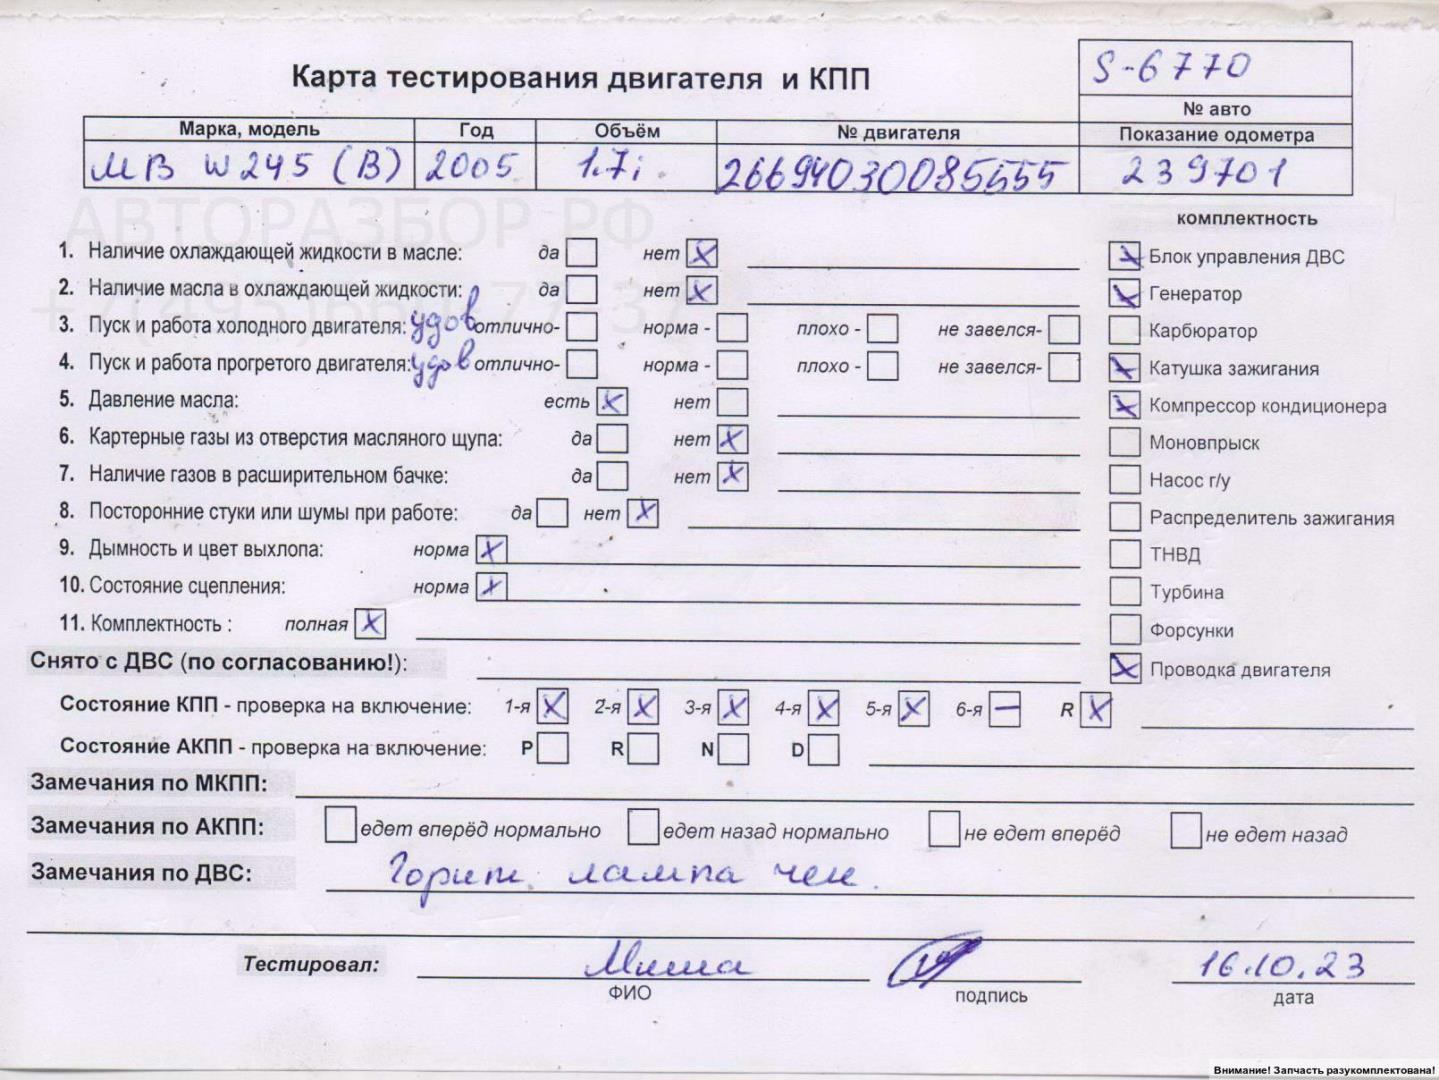 S-6770
Карта тестирования двигателя и КПП
№ авто
Марка, модель Год Объём № двигателя Показание одометра
МВ W245 (В) 2005 1.7i 26694030085555 239701
АВТОРАЗБОР.РФ
комплектность
1. Наличие охлаждающей жидкости в масле: да нет X X Блок управления ДВС
2. Наличие масла в охлаждающей жидкости: да нет X X Генератор
3. Пуск и работа холодного двигателя: удов отлично- норма - плохо - не завелся- Карбюратор
4. Пуск и работа прогретого двигателя: удов отлично- норма - плохо - не завелся- X Катушка зажигания
5. Давление масла: есть X нет X Компрессор кондиционера
6. Картерные газы из отверстия масляного щупа: да нет X Моновпрыск
7. Наличие газов в расширительном бачке: да нет X Насос г/у
8. Посторонние стуки или шумы при работе: да нет X Распределитель зажигания
9. Дымность и цвет выхлопа: норма X ТНВД
10. Состояние сцепления: норма X Турбина
11. Комплектность : полная X Форсунки
Снято с ДВС (по согласованию!): X Проводка двигателя
Состояние КПП - проверка на включение: 1-я X 2-я X 3-я X 4-я X 5-я X 6-я — R X
Состояние АКПП - проверка на включение: P R N D
Замечания по МКПП:
Замечания по АКПП: едет вперёд нормально едет назад нормально не едет вперёд не едет назад
Замечания по ДВС: Горит лампа чек.
Тестировал: Миша 16.10.23
ФИО подпись дата
Внимание! Запчасть разукомплектована!